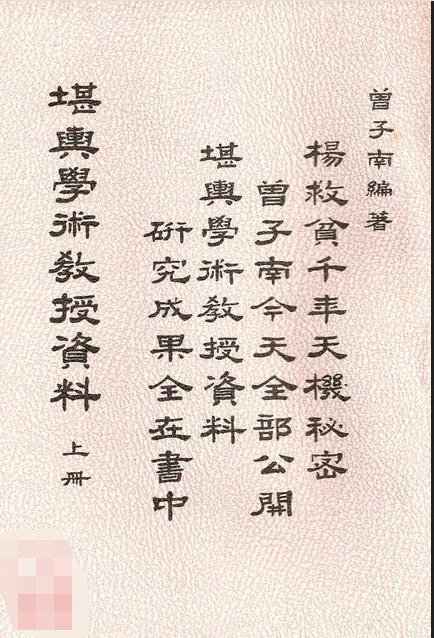 曾子南編著
楊救貧千年天機秘密
曾子南今天全部公開
堪輿學術教授資料
研究成果全在書中
堪輿學術教授資料 上冊